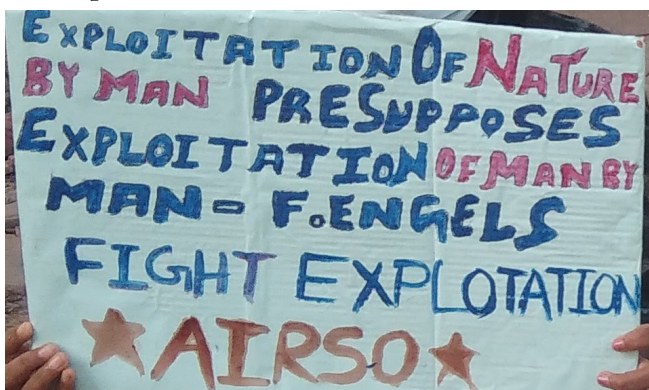 EXPLOITATION OF NATURE
BY MAN PRESUPPOSES
EXPLOITATION OF MAN BY
MAN - F. ENGELS
FIGHT EXPLOTATION
★AIRSO★